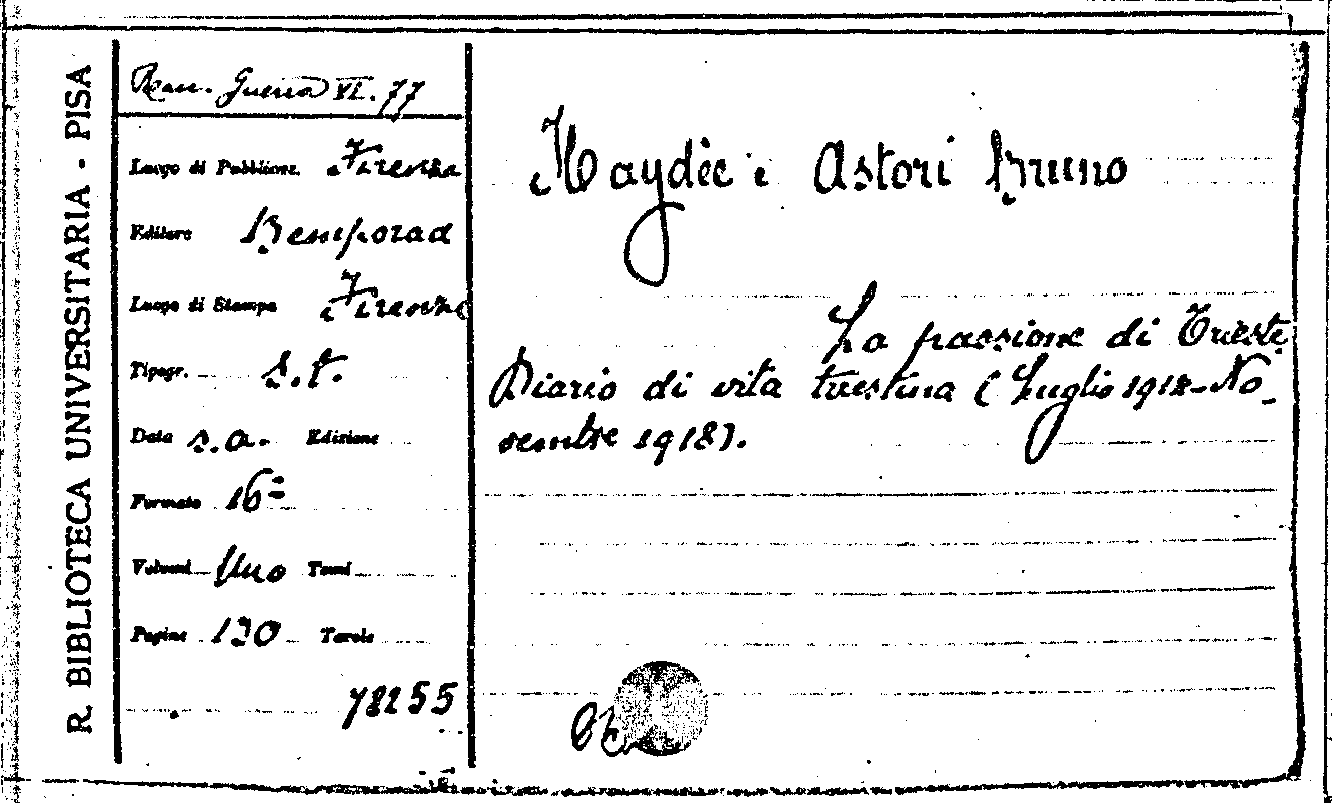 R. BIBLIOTECA UNIVERSITARIA - PISA
Guerra VI. 77
Luogo di Pubblicaz. Firenze
Editore Bemporad
Luogo di Stampa Firenze
Tipogr. s.t.
Data s.a. Edizione
Formato 16º
Volumi Uno Tomi
Pagine 130 Tavole
78255
Haydèe e Astori Bruno
La passione di Trieste
Diario di vita triestina (Luglio 1912-No-
vembre 1918).